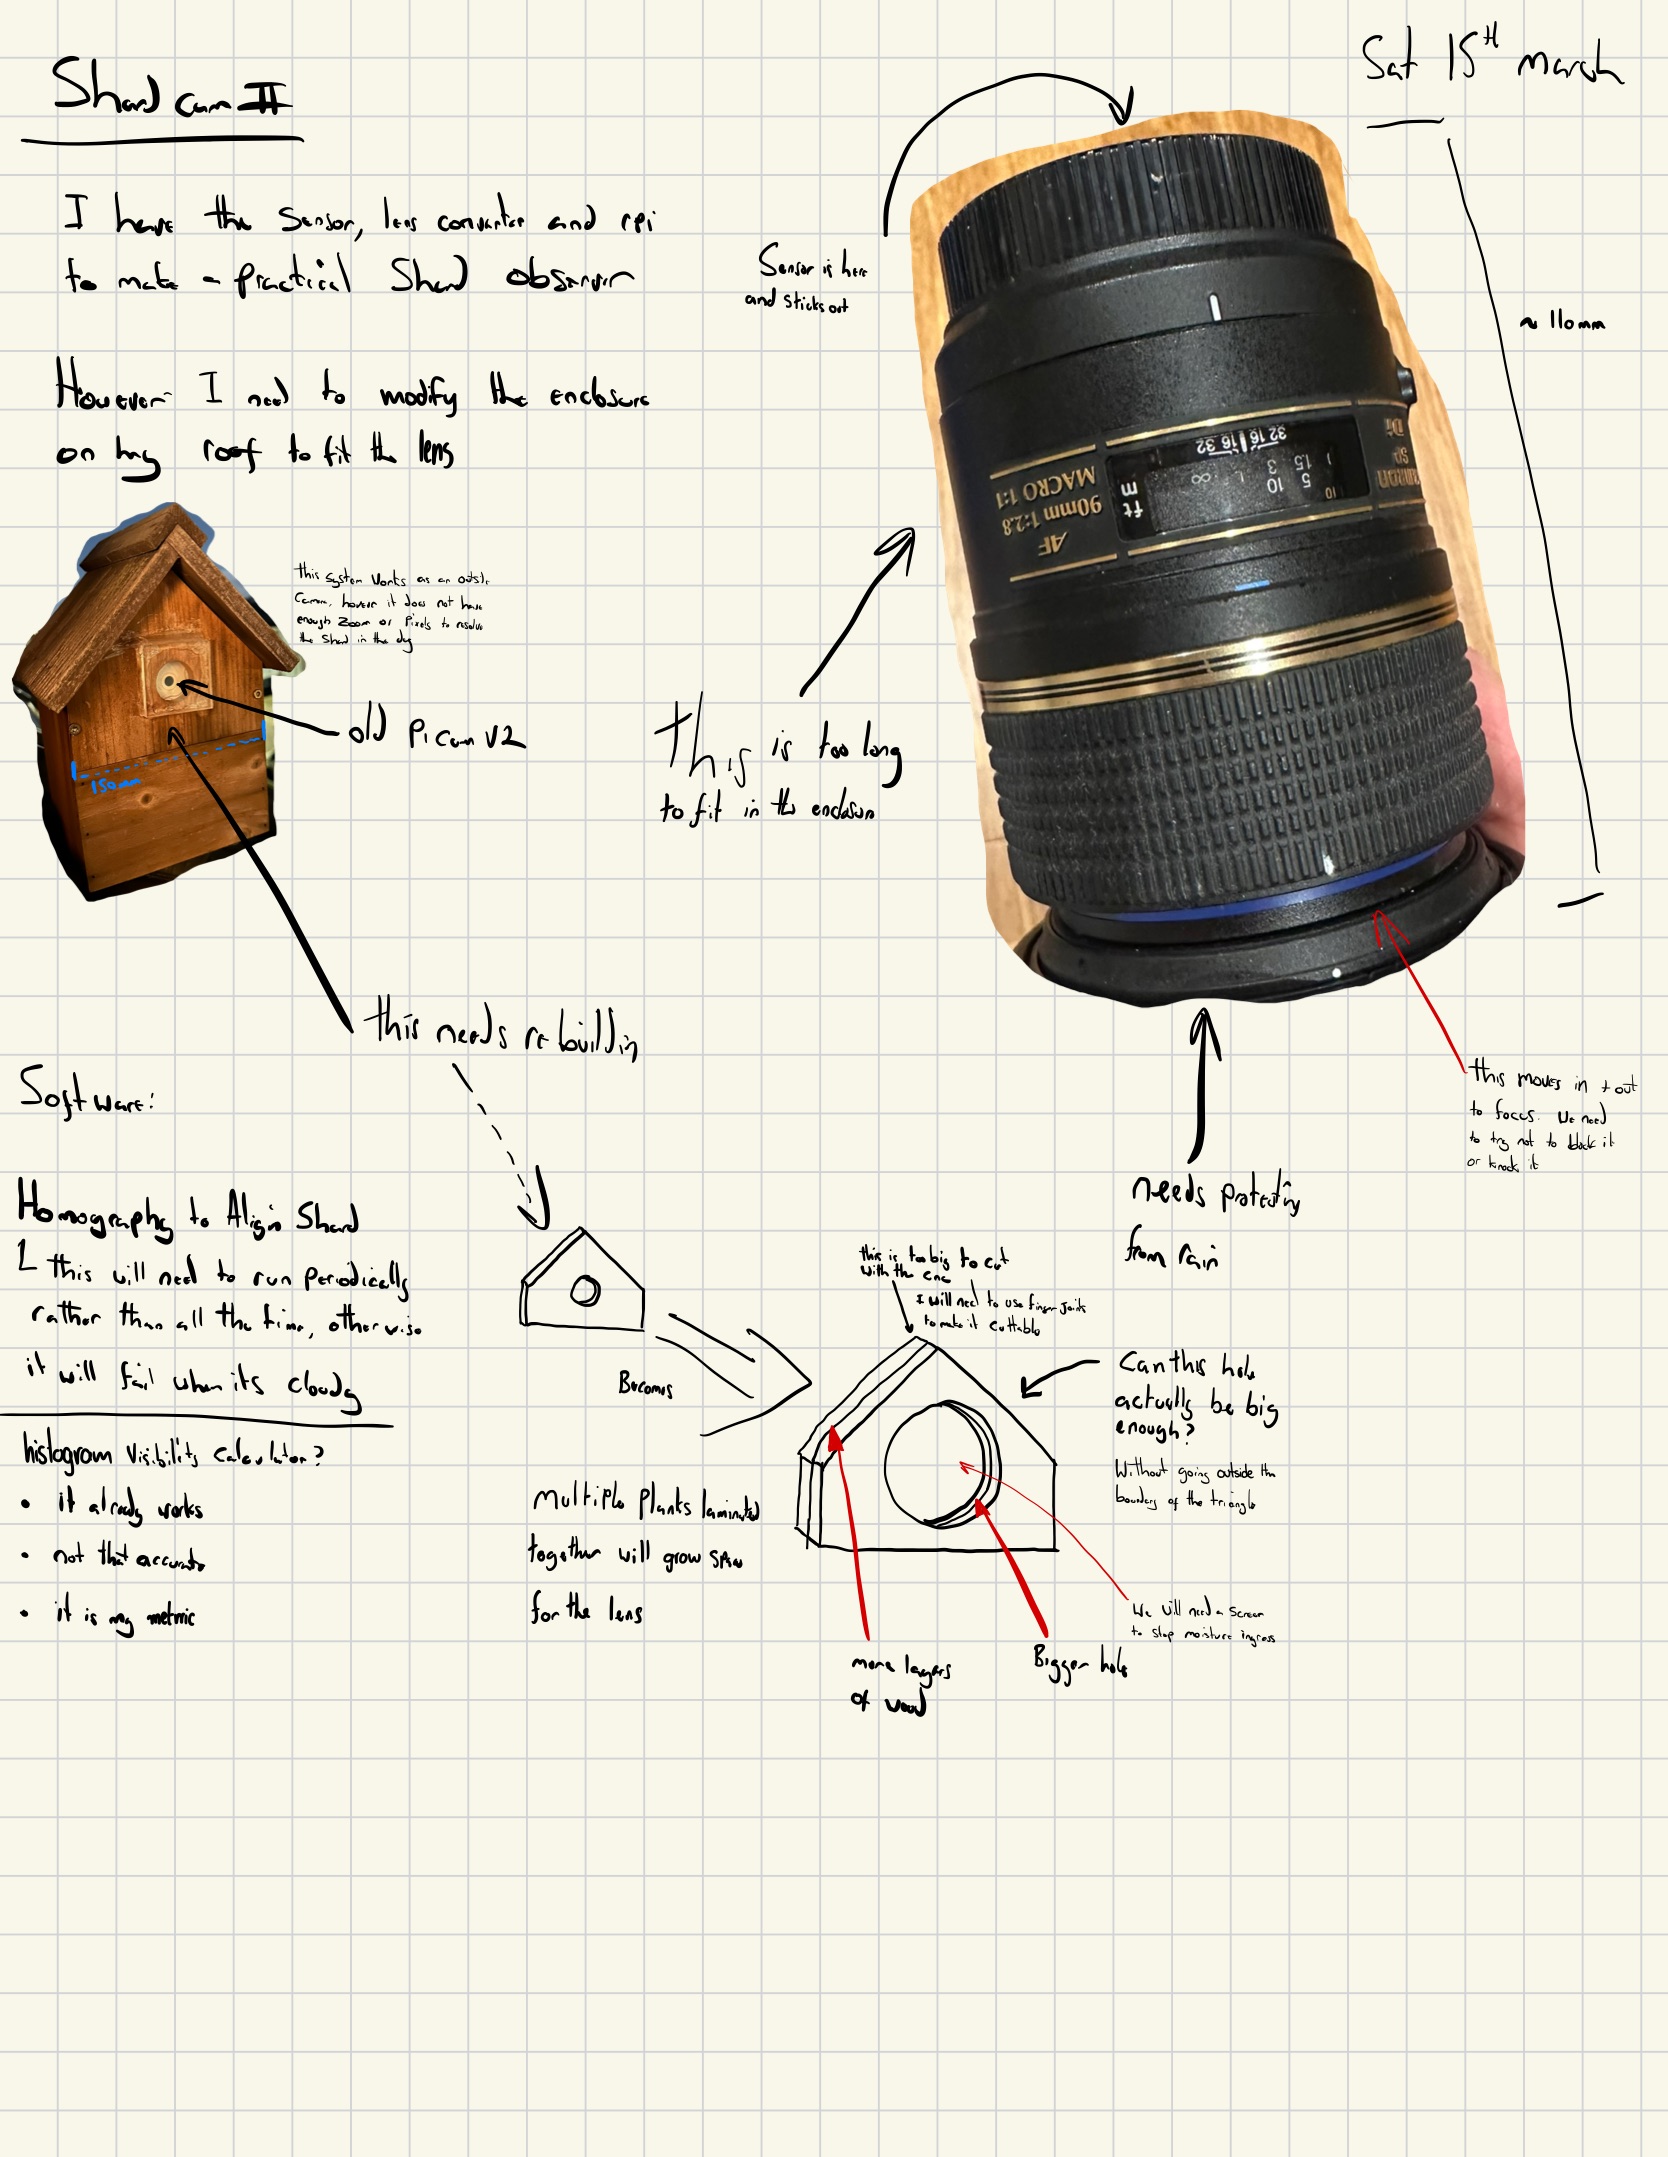 Sat 15th march
Shard cam II
I have the sensor, lens converter and rpi
to make a practical Shard observer
However I need to modify the enclosure
on my roof to fit the lens
Sensor is here
and sticks out
~ 110mm
32 16 16 32
ft
m
∞ L 3 1.5 1
10 5
AF
90mm 1:2.8
MACRO 1:1
SP
Di
this system works as an outside
Camera, however it does not have
enough Zoom or Pixels to resolve
the Shard in the day
old Picam V2
150mm
This is too long
to fit in the enclosure
this needs rebuilding
this moves in + out
to focus. We need
to try not to block it
or knock it
needs protecting
from rain
Software:
Homography to Align Shard
this will need to run periodically
rather than all the time, otherwise
it will fail when its cloudy
histogram visibility calculator?
• it already works
• not that accurate
• it is my metric
Becomes
this is too big to cut
with the cnc
I will need to use finger joints
to make it cuttable
Can this hole
actually be big
enough?
Without going outside the
boundary of the triangle
Multiple planks laminated
together will grow space
for the lens
We will need a screen
to stop moisture ingress
more layers
of wood
Bigger hole